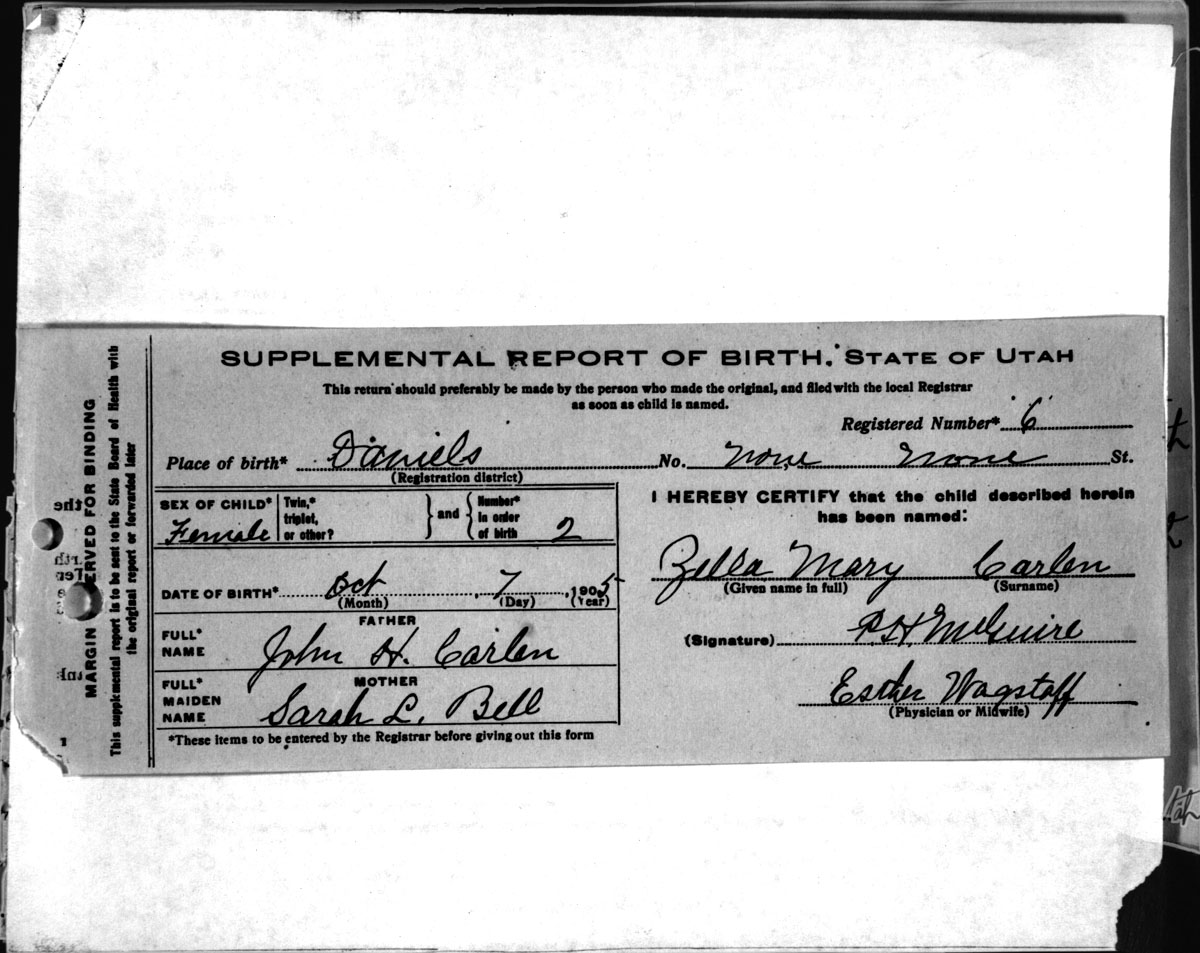 SUPPLEMENTAL REPORT OF BIRTH. STATE OF UTAH
This return should preferably be made by the person who made the original, and filed with the local Registrar
as soon as child is named.
Registered Number* 6
Place of birth* Daniels No. None None St.
(Registration district)
SEX OF CHILD* Female
Twin,* triplet, or other? } and { Number* in order of birth 2
DATE OF BIRTH* Oct 7, 1905
(Month) (Day) (Year)
FATHER
FULL* NAME John H. Carlen
MOTHER
FULL* MAIDEN NAME Sarah L. Bell
*These items to be entered by the Registrar before giving out this form
I HEREBY CERTIFY that the child described herein
has been named:
Zella Mary Carlen
(Given name in full) (Surname)
(Signature) P.H. McGuire
Esther Wagstaff
(Physician or Midwife)
MARGIN RESERVED FOR BINDING
This supplemental report is to be sent to the State Board of Health with
the original report or forwarded later